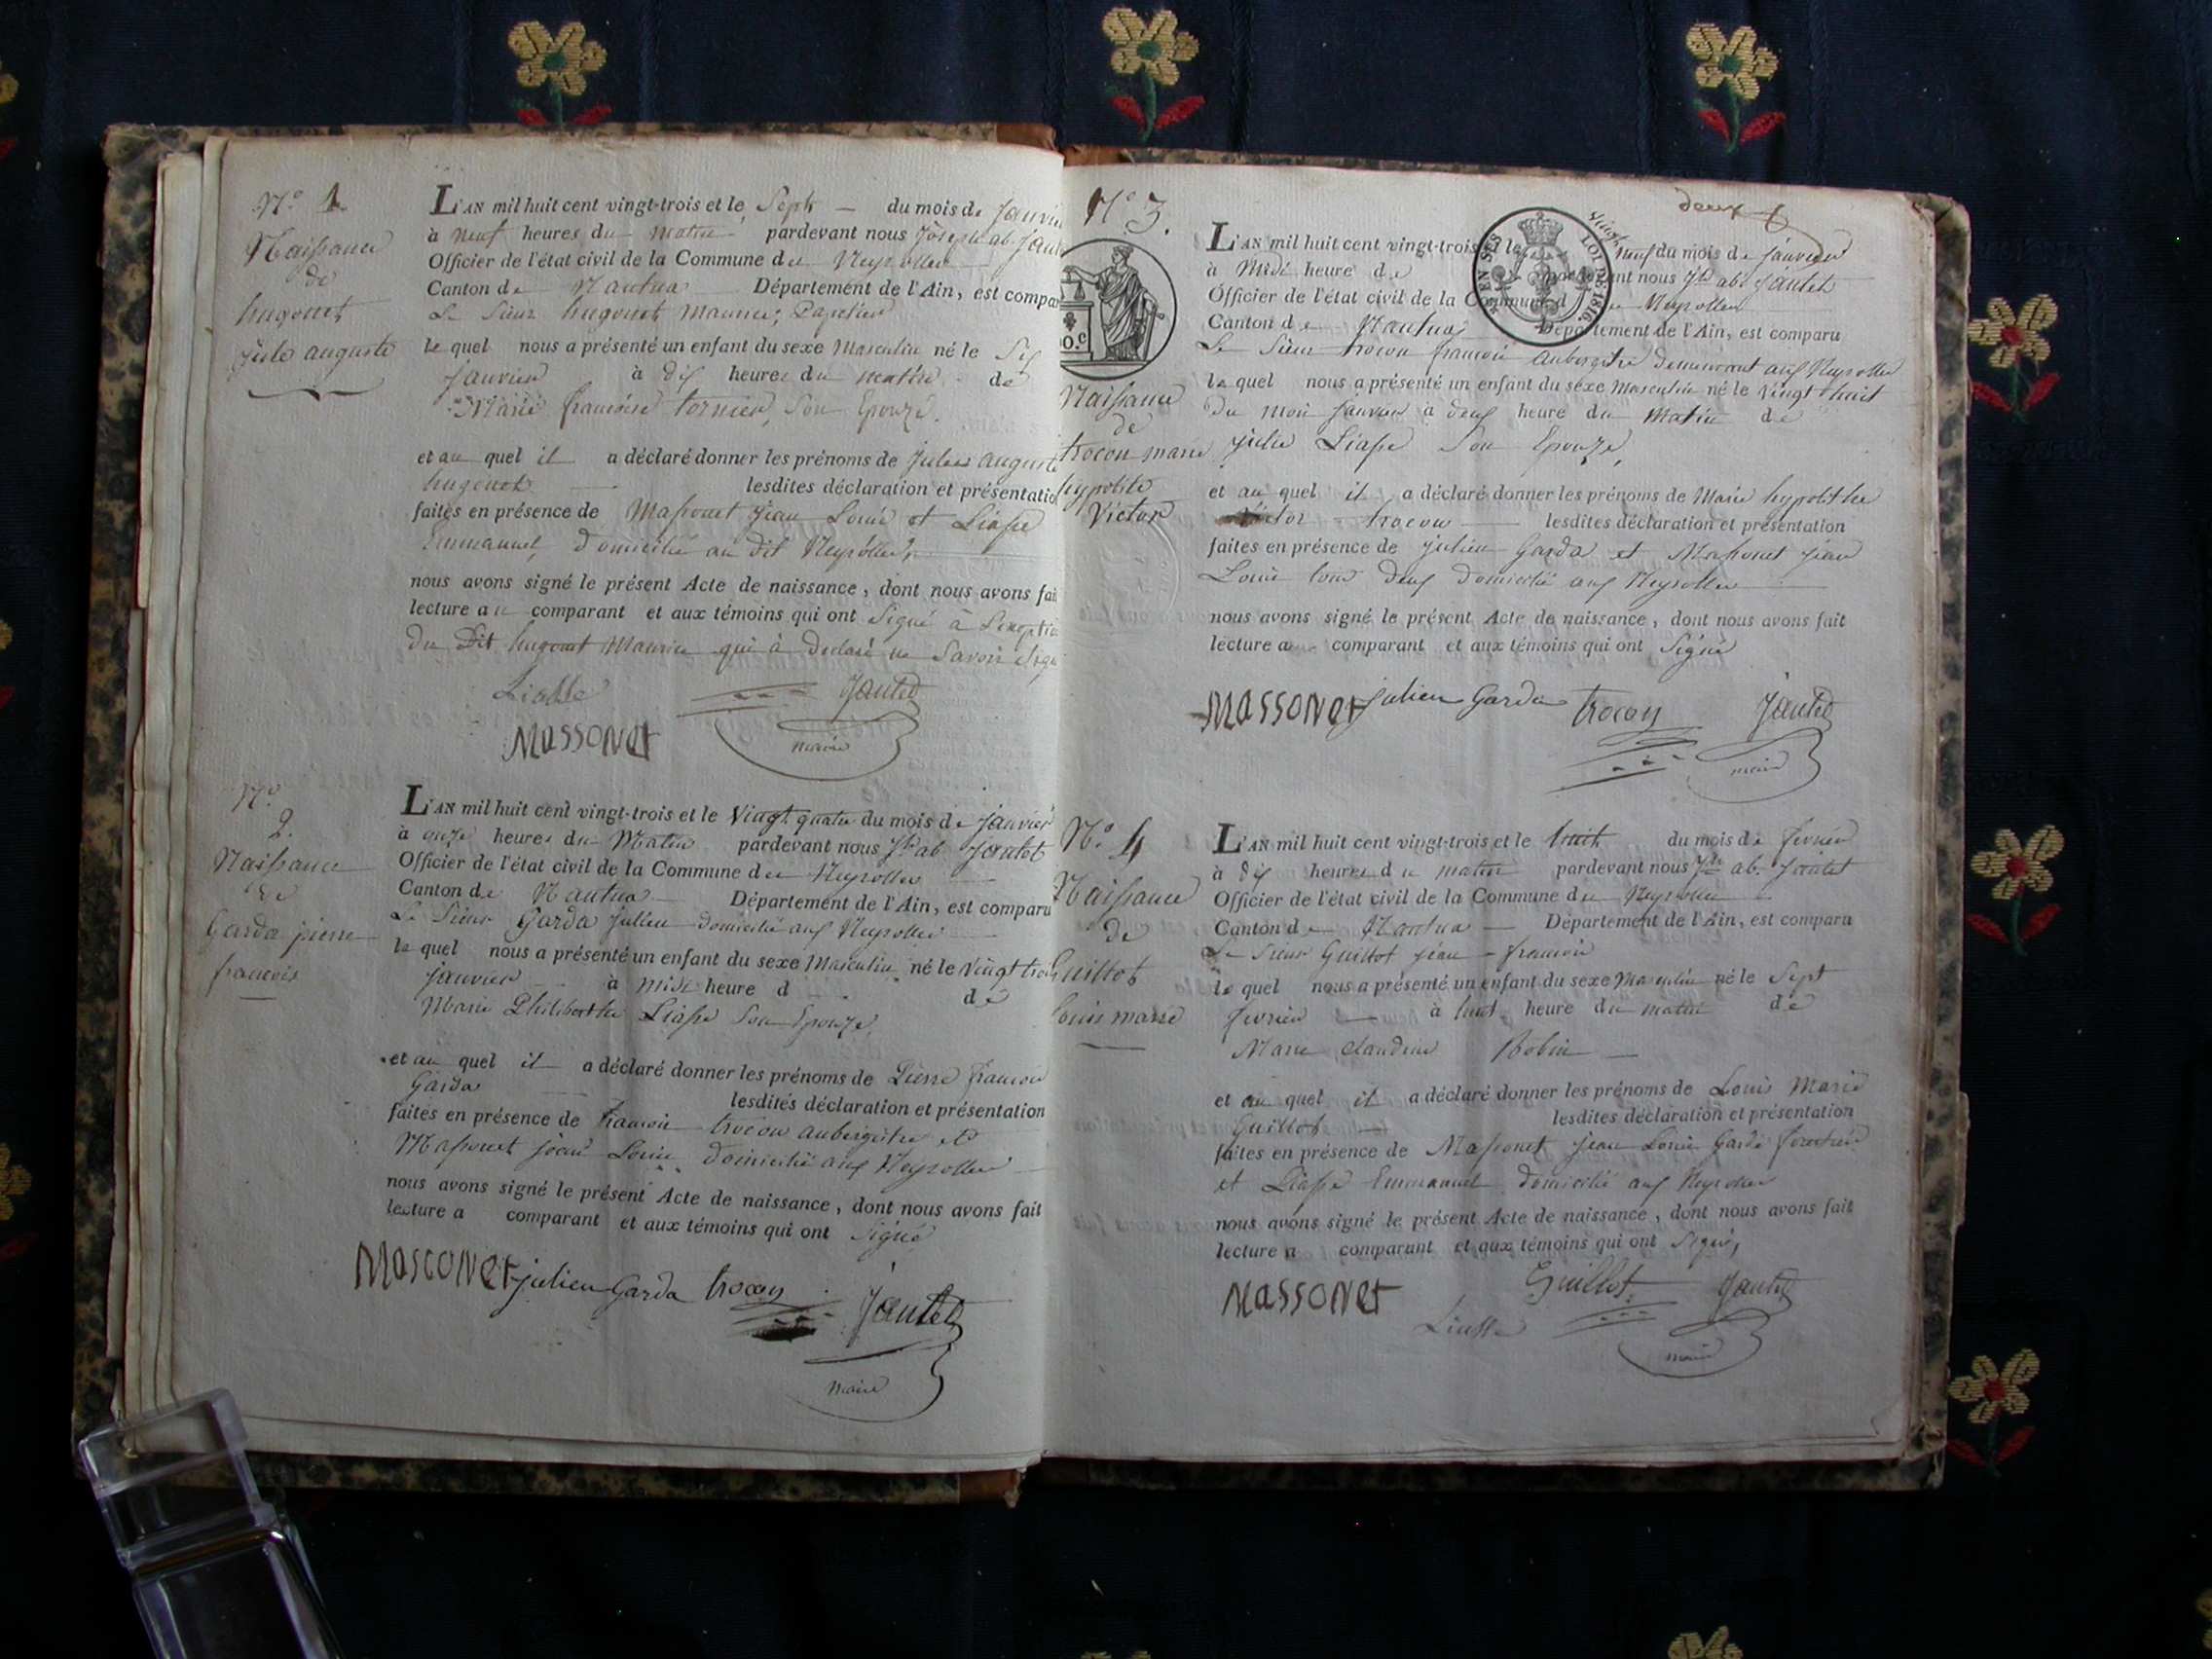 N.º 1.
Naissance
de
hugonet
jule auguste
L'AN mil huit cent vingt-trois et le Sept — du mois de janvier
à neuf heures du matin pardevant nous Joseph ab. Jantet
Officier de l'état civil de la Commune des Neyrolles
Canton de Nantua Département de l'Ain, est compar
Le Sieur hugonet Maurice, Papetier
lequel nous a présenté un enfant du sexe Masculin né le Six
janvier à dix heures du matin de
Marie françoise tornier, Son Epouze.
et au quel il a déclaré donner les prénoms de Jules auguste
hugonet lesdites déclaration et présentation
faites en présence de Massonet Jean Louis et Liasse
Emmanuel, domicilié au dit Neyrolles,
nous avons signé le présent Acte de naissance, dont nous avons fai
lecture au comparant et aux témoins qui ont Signé à Lexeption
du Dit hugonet Maurice qui à Déclaré ne Savoir Signé
Liasse Jantet
Massonet maire
N.º
2.
Naissance
de
Garda pierre
francois
L'AN mil huit cent vingt-trois et le Vingt quatre du mois de janvier
à onze heures du Matin pardevant nous Jh ab Jantet
Officier de l'état civil de la Commune des Neyrolles
Canton de Nantua Département de l'Ain, est comparu
Le Sieur Garda Julien domicilié aux Neyrolles
lequel nous a présenté un enfant du sexe Masculin né le Vingt trois
janvier à midi heure d de
Marie Philiberthe Liasse Son Epouze,
et au quel il a déclaré donner les prénoms de Pierre francois
Garda lesdites déclaration et présentation
faites en présence de francois trocon aubergiste et
Massonet jean Louis domicilié aux Neyrolles
nous avons signé le présent Acte de naissance, dont nous avons fait
lecture a comparant et aux témoins qui ont Signé
Massonet julien Garda trocon Jantet
maire
deux
N.º 3.
EN SES LOI DE 1816.
0.c
Naissance
de
trocon marie
hypolite
Victor
L'AN mil huit cent vingt-trois et le Vingt neuf du mois de janvier
à Midi heure de pardevant nous Jh ab. Jantet
Officier de l'état civil de la Commune des Neyrolles
Canton de Nantua Département de l'Ain, est comparu
Le Sieur trocon francois aubergiste demeurant aux Neyrolles
lequel nous a présenté un enfant du sexe Masculin né le Vingt huit
du mois janvier à deux heure du Matin de
julie Liasse Son Epouze,
et au quel il a déclaré donner les prénoms de Marie hypolithe
Victor trocon lesdites déclaration et présentation
faites en présence de julien Garda et Massonet jean
Louis tous deux domicilié aux Neyrolles
nous avons signé le présent Acte de naissance, dont nous avons fait
lecture au comparant et aux témoins qui ont Signé
Massonet julien Garda trocon Jantet
maire
N.º 4
Naissance
de
Guillot
Louis marie
L'AN mil huit cent vingt-trois et le huit du mois de fevrier
à dix heures du matin pardevant nous Jh ab. Jantet
Officier de l'état civil de la Commune des Neyrolles
Canton de Nantua Département de l'Ain, est comparu
Le Sieur Guillot jean-francois
lequel nous a présenté un enfant du sexe Masculin né le Sept
fevrier à huit heure du matin de
Marie claudine Robin
et au quel il a déclaré donner les prénoms de Louis Marie
Guillot lesdites déclaration et présentation
faites en présence de Massonet jean Louis Garde forestier
et Liasse Emmanuel domicilié aux Neyrolles
nous avons signé le présent Acte de naissance, dont nous avons fait
lecture a comparant et aux témoins qui ont Signé,
Massonet Guillot Jantet
Liasse maire